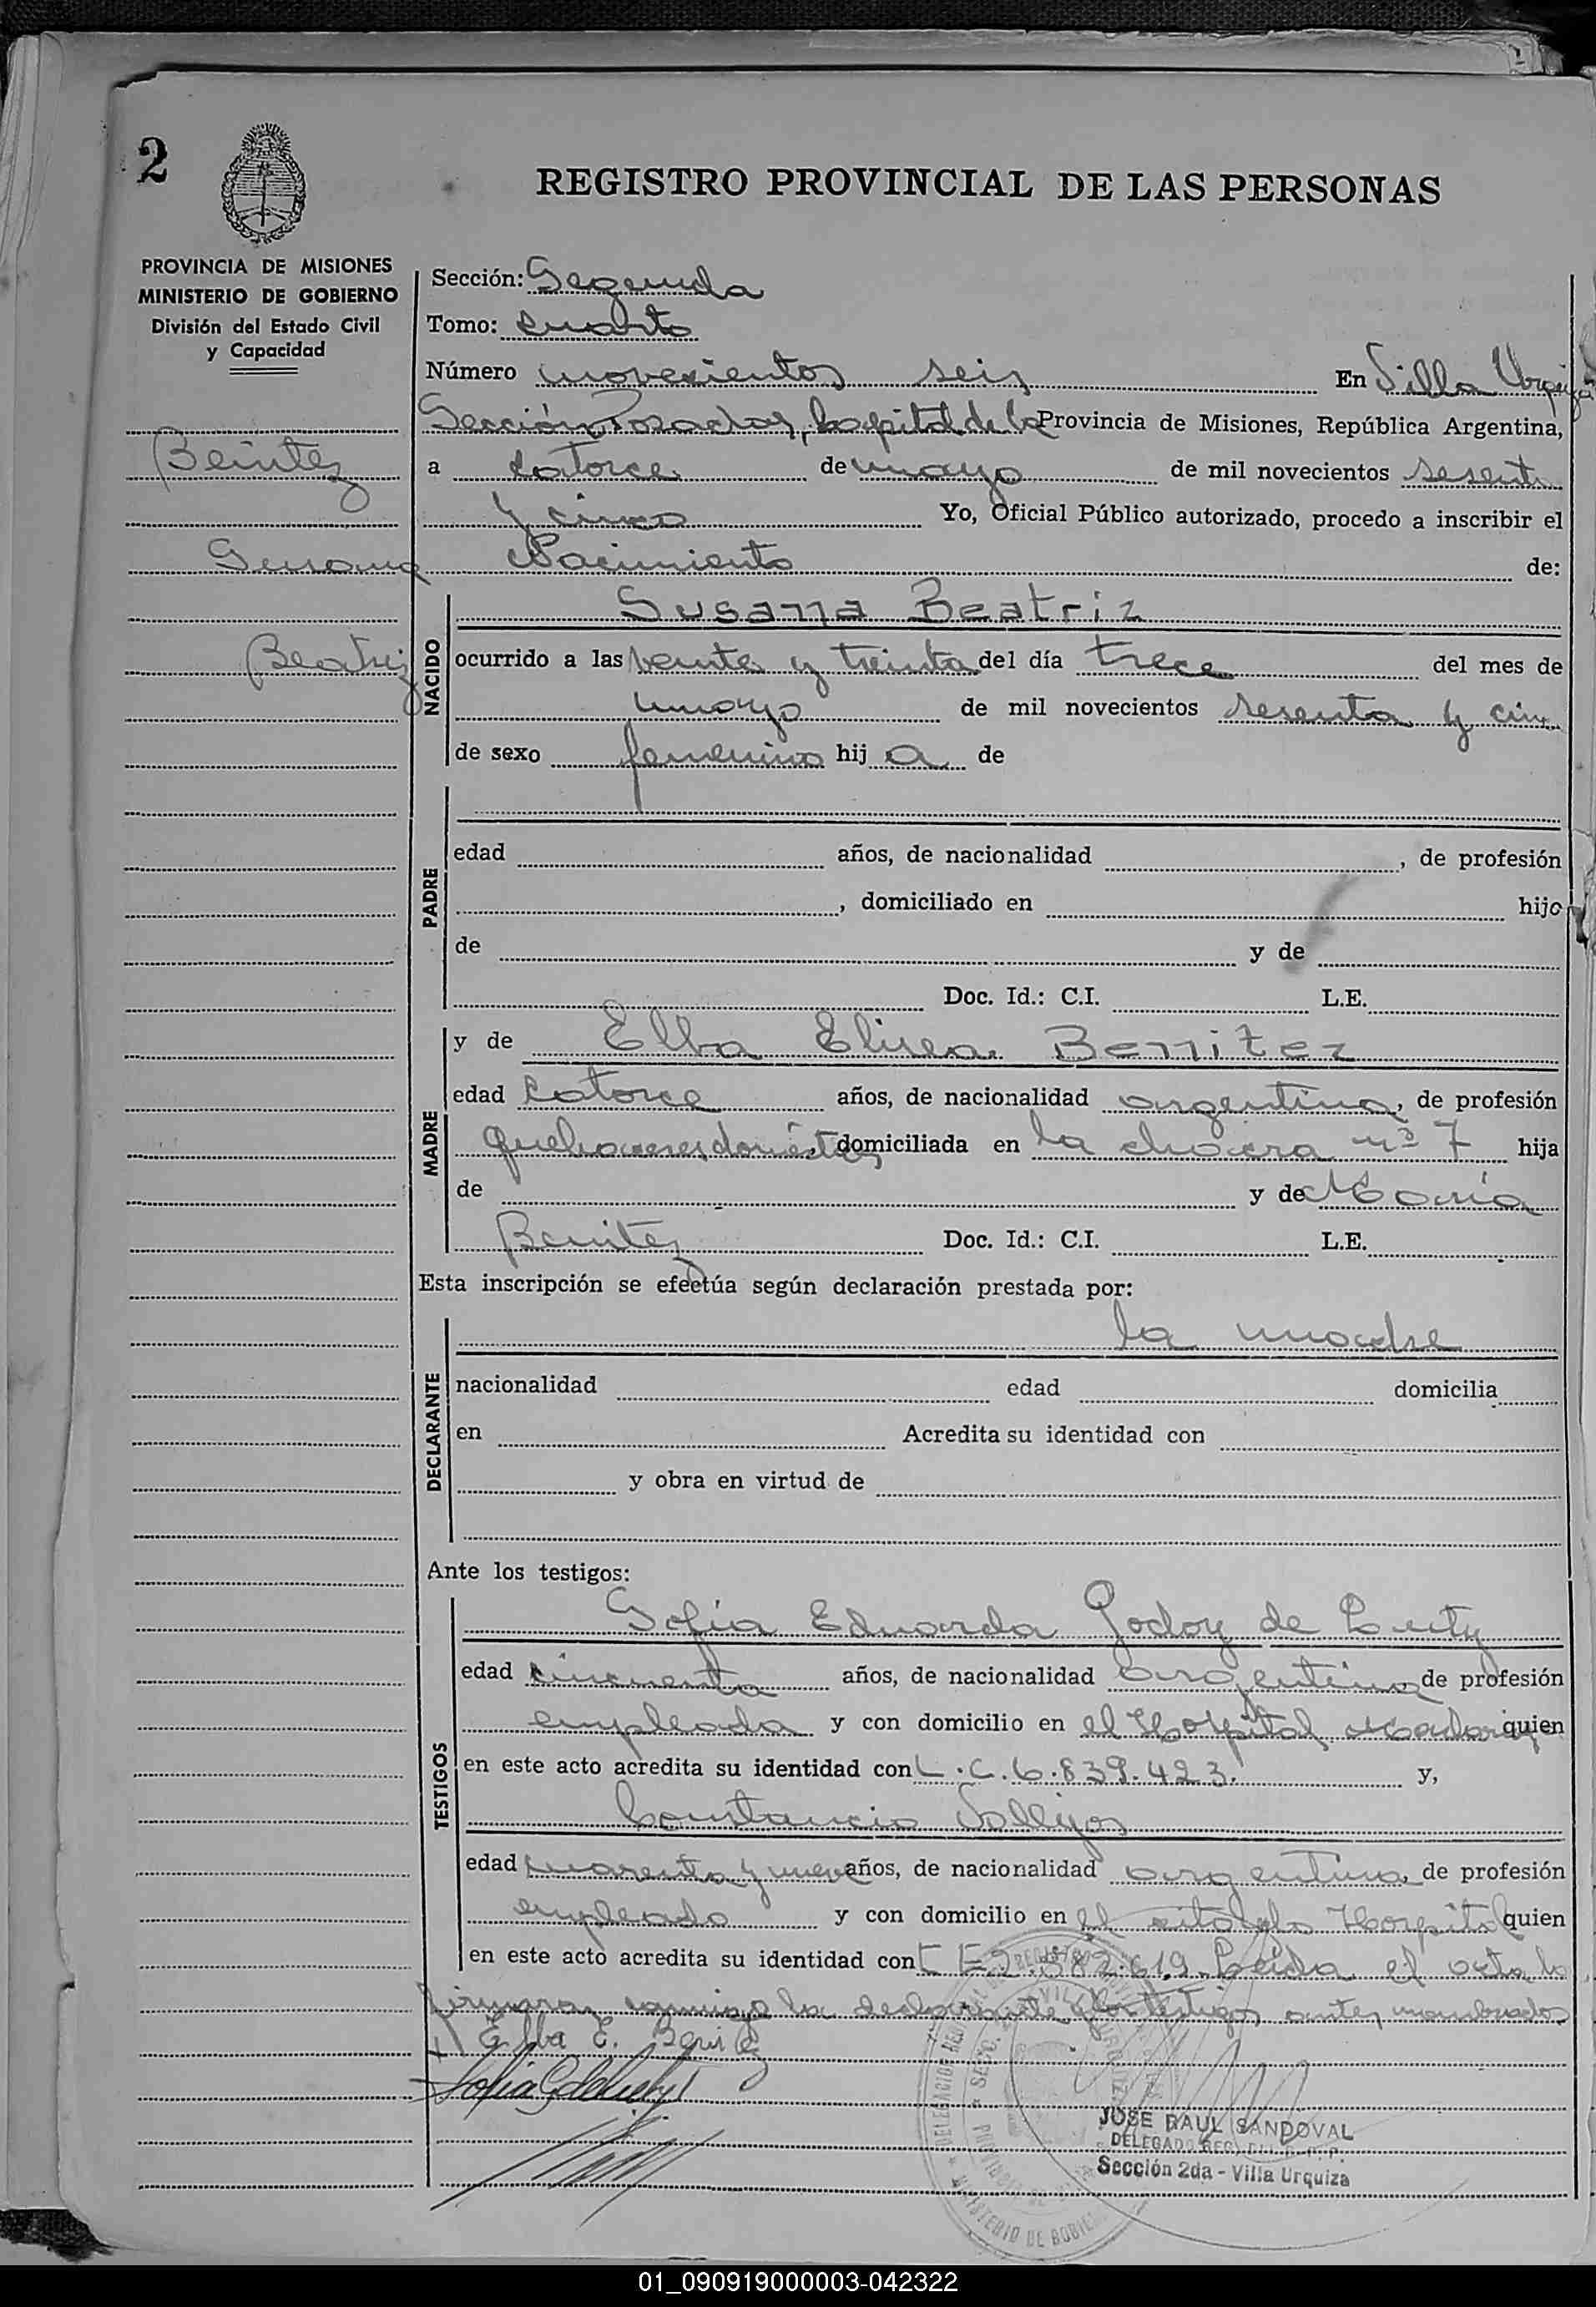 2
REGISTRO PROVINCIAL DE LAS PERSONAS
PROVINCIA DE MISIONES
MINISTERIO DE GOBIERNO
División del Estado Civil
y Capacidad
Benitez
Susana
Beatriz
Sección: Segunda
Tomo: cuarto
Número novecientos seis En Villa Urquiza
Sección Posadas, capital de la Provincia de Misiones, República Argentina,
a catorce de mayo de mil novecientos sesenta
y cinco Yo, Oficial Público autorizado, procedo a inscribir el
Nacimiento de:
NACIDO
Susana Beatriz
ocurrido a las veinte y treinta del día trece del mes de
mayo de mil novecientos sesenta y cinco
de sexo femenino hij a de
PADRE
edad años, de nacionalidad , de profesión
, domiciliado en hijo
de y de
Doc. Id.: C.I. L.E.
MADRE
y de Elba Elisea Benitez
edad catorce años, de nacionalidad argentina, de profesión
quehaceres domésticos, domiciliada en la chacra nº 7 hija
de y de María
Benitez Doc. Id.: C.I. L.E.
Esta inscripción se efectúa según declaración prestada por:
DECLARANTE
la madre
nacionalidad edad domicilia
en Acredita su identidad con
y obra en virtud de
Ante los testigos:
TESTIGOS
Sofía Eduarda Godoy de
edad cincuenta años, de nacionalidad argentina, de profesión
empleada y con domicilio en el Hospital Madariaga quien
en este acto acredita su identidad con L.C. 6.839.423. y,
Constancio Vallejos
edad cuarenta y nueve años, de nacionalidad argentina, de profesión
empleado y con domicilio en el citado Hospital quien
en este acto acredita su identidad con L E 2.382.619. Leída el acta la
firmaron conmigo la declarante y los testigos antes nombrados
Elba E. Benitez
JOSE RAUL SANDOVAL
DELEGADO
Sección 2da - Villa Urquiza
01_090919000003-042322